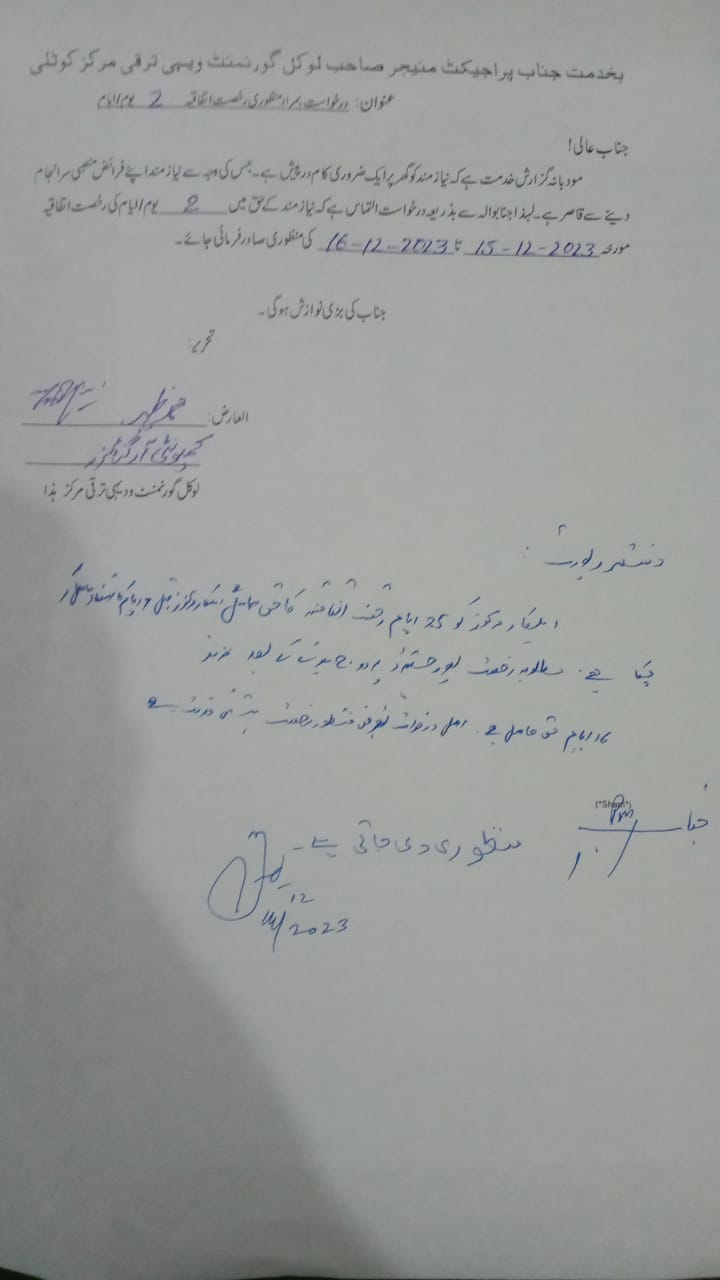 بخدمت جناب پراجیکٹ منیجر صاحب لوکل گورنمنٹ ویہی ترقی مرکز کوٹلی
عنوان: درخواست بمراد منظوری رخصت اتفاقیہ 2 یوم/ایام
جناب عالی!
مودبانہ گزارش خدمت ہے کہ نیازمند کو گھر پر ایک ضروری کام درپیش ہے۔ جس کی وجہ سے نیازمند اپنے فرائض منصبی سرانجام
دینے سے قاصر ہے۔ لہذا جنابوالہ سے بذریعہ درخواست التماس ہے کہ نیازمند کے حق میں 2 یوم/ایام کی رخصت اتفاقیہ
مورخہ 15-12-2023 تا 16-12-2023 کی منظوری صادر فرمائی جائے۔
جناب کی بڑی نوازش ہوگی۔
تحریر:
العارض: محمد
کمیونٹی آرگنائزر
لوکل گورنمنٹ ودیہی ترقی مرکز ہذا
دفتر رپورٹ:
اہلکار مذکور کو 25 ایام رخصت اتفاقیہ کا حق حاصل
چکا ہے۔ مطلوبہ رخصت کے بعد مزید
ایام حق حاصل ہے۔ اصل درخواست بغرض منظوری رخصت پیش خدمت ہے
جناب PM
("Sham")
منظوری دی جاتی ہے۔
12
2023